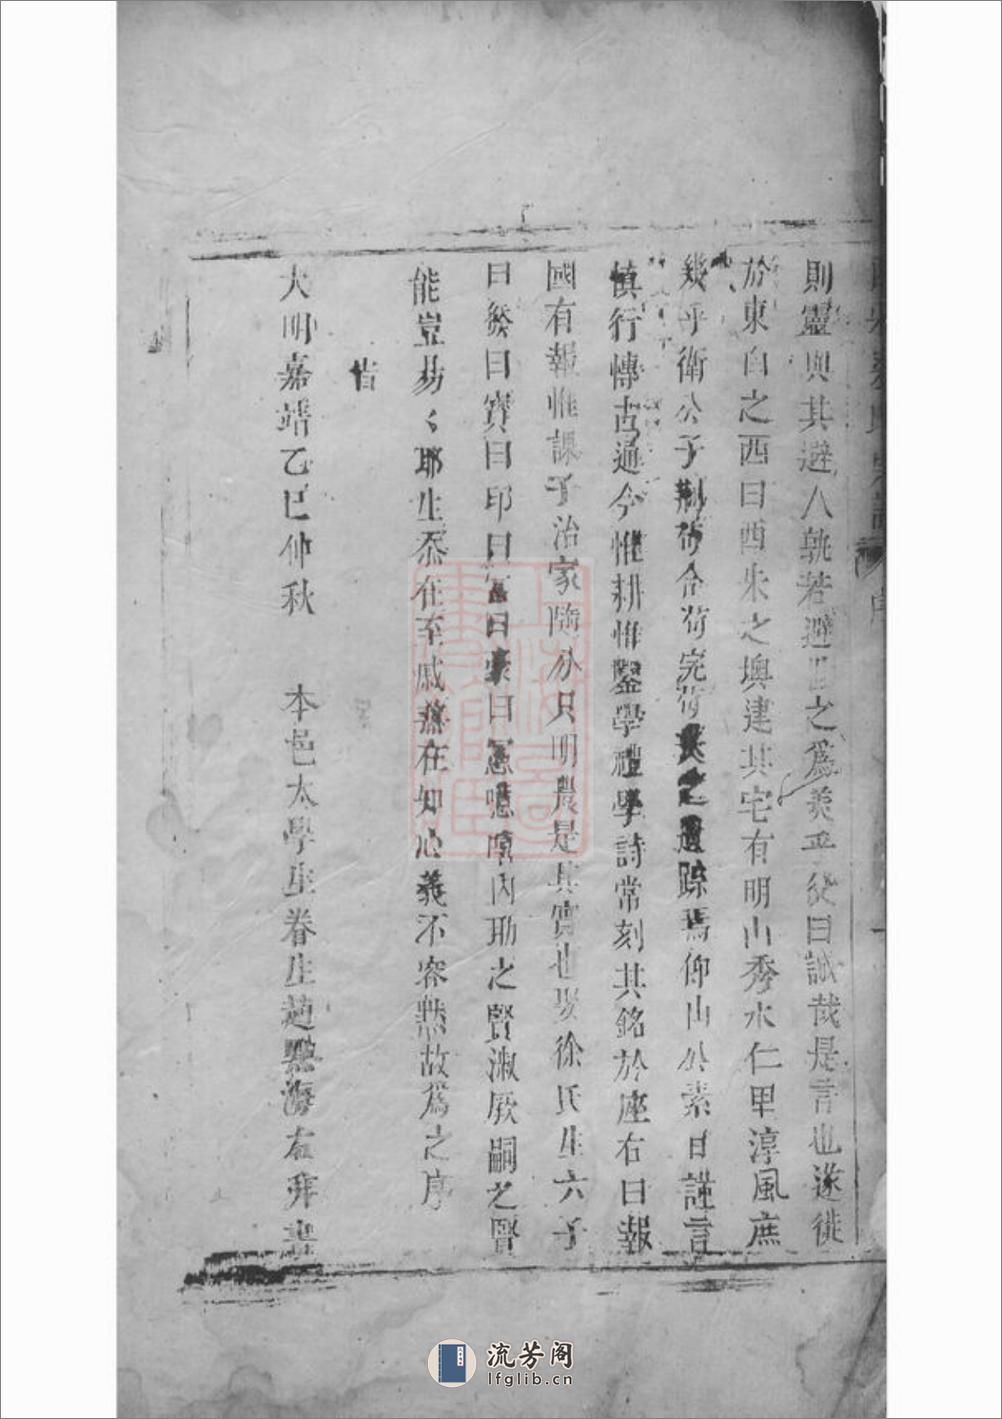 則靈與其避人孰若避世之爲美乎從曰誠哉是言也遂徙
於東白之西曰酉朱之墺建其宅有明山秀水仁里淳風庶
幾乎衛公子荆苟合苟完苟美之遺踪焉仰山公素日謹言
慎行博古通今惟耕惟鑿學禮學詩常刻其銘於座右曰報
國有報惟課子治家隨分只明農是其實也娶徐氏生六子
曰 曰寳曰印曰 曰豪曰憲噫嘻內助之賢淑厥嗣之賢
能豈易々耶生忝在至戚兼在知心義不容黙故爲之序
旹
大明嘉靖乙巳仲秋 本邑太學生眷生趙 海右拜書
上海圖書館藏
流芳阁
lfglib.cn